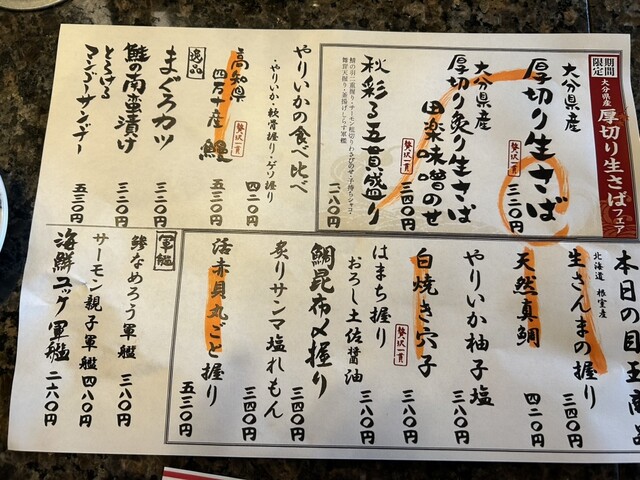 期間限定
大分県産
厚切り生さばフェア
大分県産
厚切り生さば
贅沢一貫
三二〇円
大分県産
厚切り炙り生さば
田楽味噌のせ
贅沢一貫
三四〇円
秋彩る五貫盛り
一一八〇円
やりいかの食べ比べ
・やりいか・軟骨握り・ゲソ握り
四二〇円
高知県
四万十産 鰻
贅沢一貫
五三〇円
逸品
まぐろカツ
三二〇円
鮭の南蛮漬け
三二〇円
とろける
マンゴーサンデー
五三〇円
本日の目玉商品
北海道 根室産
生さんまの握り
三四〇円
天然真鯛
四二〇円
やりいか柚子塩
三八〇円
白焼き穴子
贅沢一貫
三八〇円
はまち握り
おろし土佐醤油
三八〇円
鯛昆布〆握り
三四〇円
炙りサンマ塩れもん
三四〇円
活赤貝丸ごと握り
五三〇円
軍艦
鯵なめろう軍艦 三八〇円
サーモン親子軍艦 四八〇円
海鮮ユッケ軍艦 二六〇円